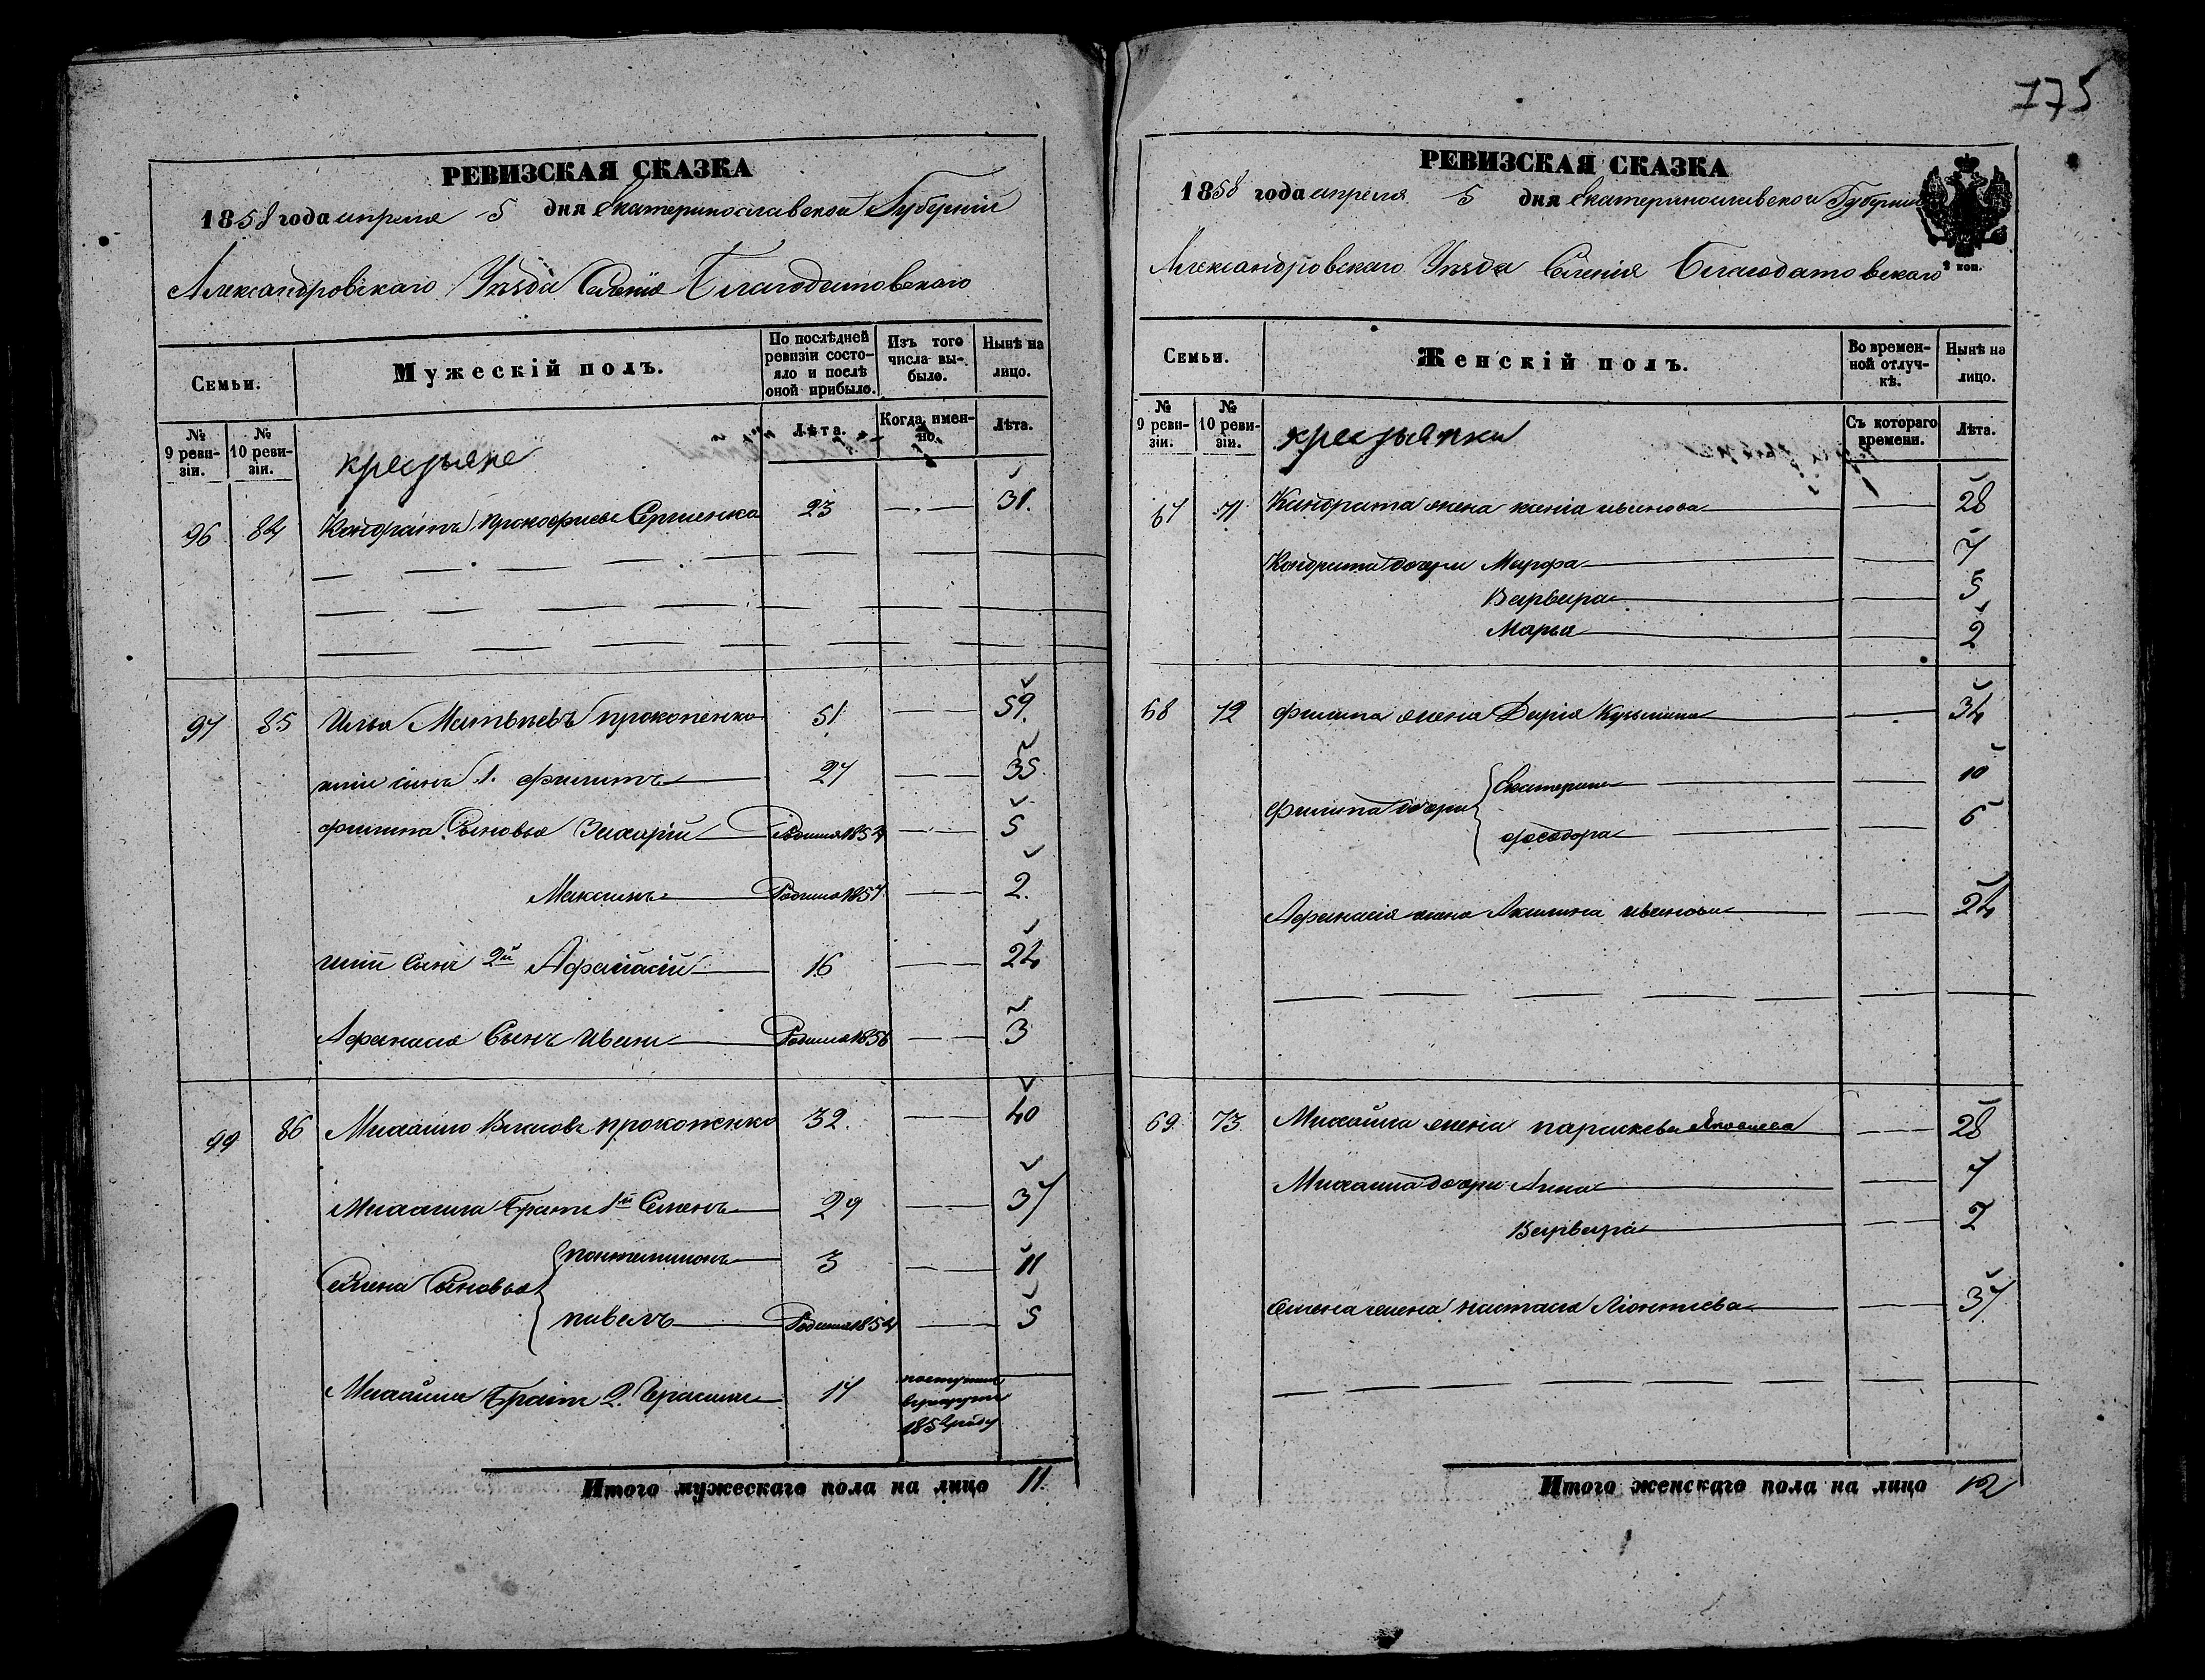 175
РЕВИЗСКАЯ СКАЗКА
1858 года апреля 5 дня Екатеринославской Губернии
Александровскаго Уезда Селения Благодатовскаго
Семьи.
Мужескій полъ.
По послѣдней ревизіи состояло и послѣ оной прибыло.
Изъ того числа выбыло.
Нынѣ на лицо.
№ 9 ревизіи.
№ 10 ревизіи.
крестьяне
Лѣта.
Когда именно.
Лѣта.
96 84 Кондратъ Прокофиевъ Сергиенко 23 31.
97 85 Илья Матвѣевъ Прокопенко 51 59.
илии сынъ 1. Филипъ 27 35.
Филипа Сыновья Захарий Родился 1854 5
Максимъ Родился 1857 2.
илии Сынъ 2й Афанасий 16 24
Афанасия Сынъ Иванъ Родился 1856 3
99 86 Михайло Власовъ Прокопенко 32. 40
Михаила Братъ 1й Семенъ 29 37
Семена Сыновья
Понтелимонъ 3 11
Павелъ Родился 1854 5
Михайла Братъ 2. Герасимъ 17 поступилъ в рекруты 1854 году
Итого мужескаго пола на лицо 11.
РЕВИЗСКАЯ СКАЗКА
1858 года апреля 5 дня Екатеринославской Губернии
Александровскаго Уезда Селения Благодатовскаго
2 коп.
Семьи.
Женскій полъ.
Во временной отлучкѣ.
Нынѣ на лицо.
№ 9 ревизіи.
№ 10 ревизіи.
крестьянки
Съ котораго времени.
Лѣта.
67 71 Кондрата жена Ксения Иванова 28
Кондрата дочери Марфа 7
Варвара 5
Марья 2
68 72 Филипа жена Дарья Кузьмина 34
Филипа дочери
Екатерина 10
Феодора 6
Афанасия жена Акилина Иванова 24
69 73 Михайла жена Параскева 28
Михаила дочери Анна 7
Варвара 2
Семена жена Настасья Лионтиева 37
Итого женскаго пола на лицо 12